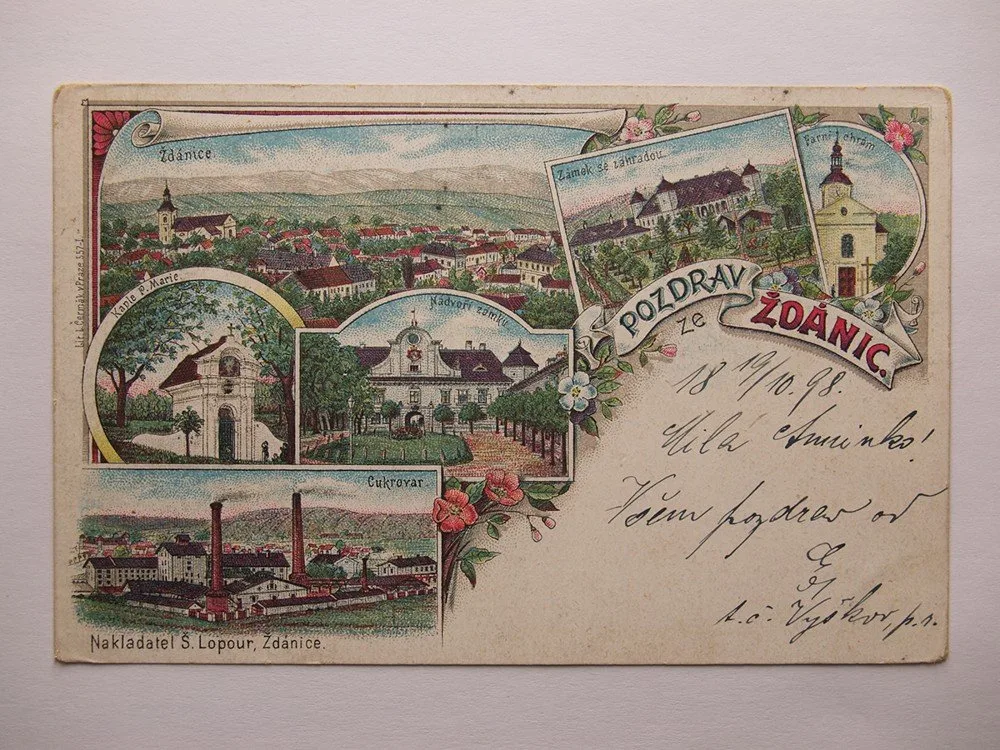 Ždánice.
Zámek se zahradou.
Farní chrám
Kaple P. Marie.
Nádvoří zámku
POZDRAV
ze
ŽDÁNIC.
18 19/10. 98.
Milá Anninko!
Všem pozdrav od
t. č. Vyškov, p. r.
Cukrovar
Nakladatel Š. Lopour, Ždánice.
Lit. L. Čermák v Praze